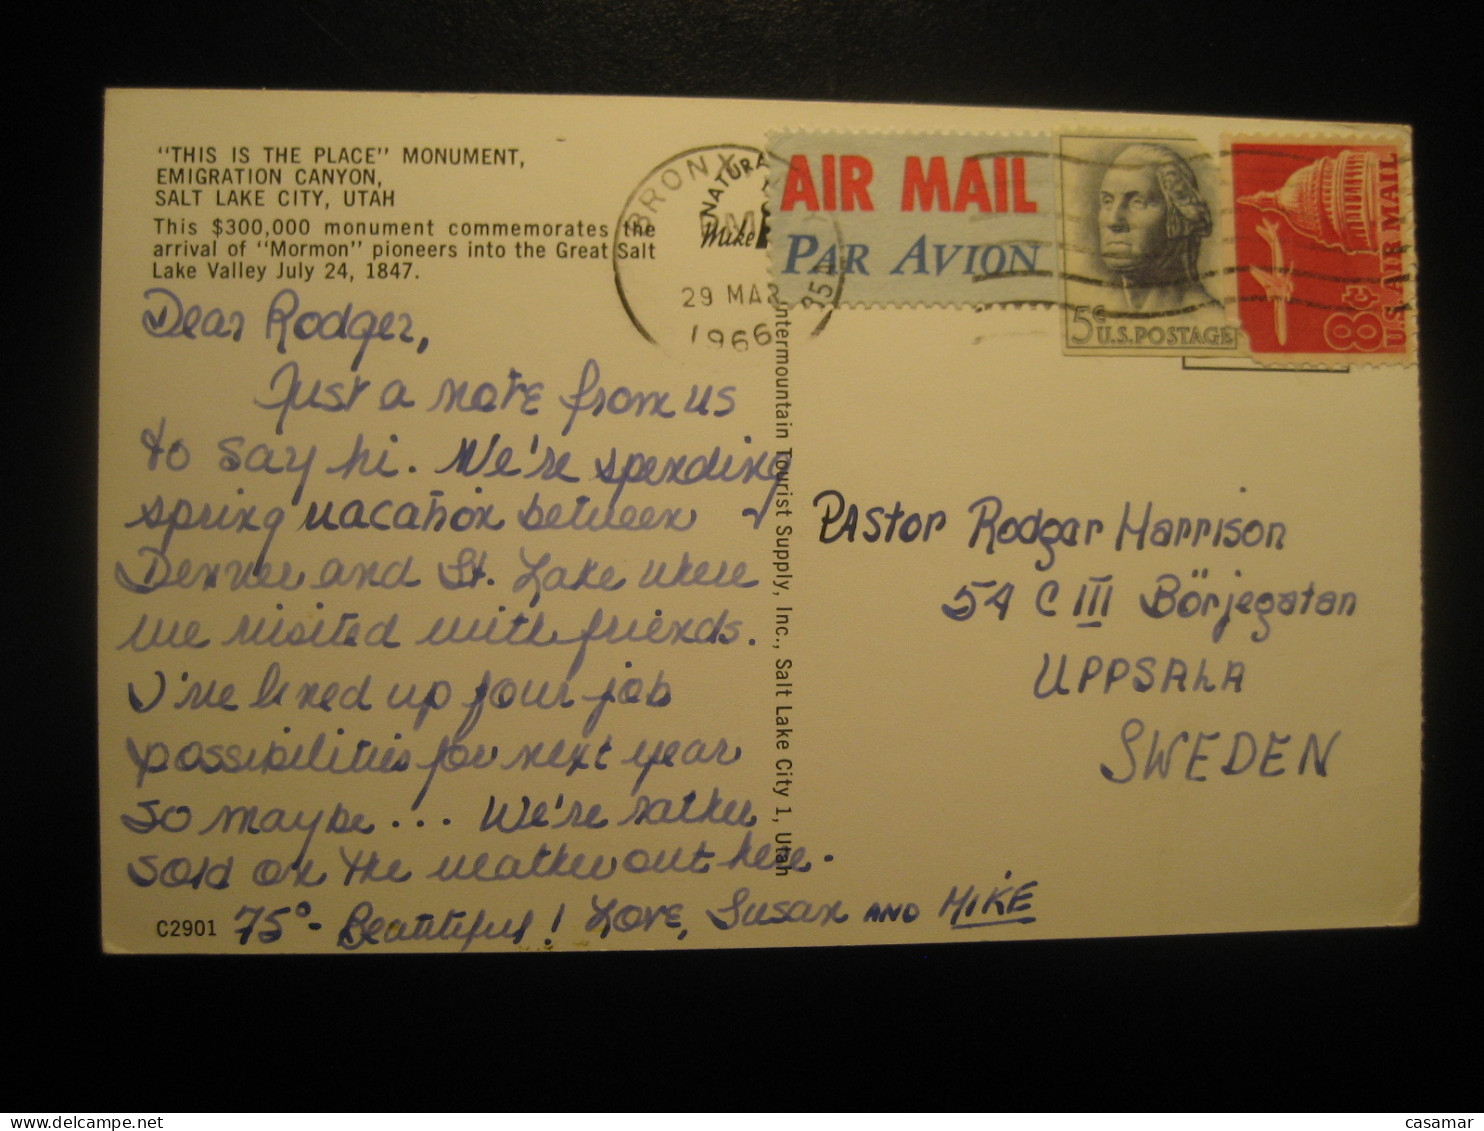 "THIS IS THE PLACE" MONUMENT,
EMIGRATION CANYON,
SALT LAKE CITY, UTAH
This $300,000 monument commemorates the
arrival of "Mormon" pioneers into the Great Salt
Lake Valley July 24, 1847.
Dear Rodger,
Just a note from us
to say hi. We're spending
spring vacation between
Denver and St. Lake where
we visited with friends.
I've lined up four job
possibilities for next year
so maybe... We're rather
sold on the weather out here.
75° - Beautiful! Love, Susan AND MIKE
C2901
BRONX
PM
29 MAR
1966
NATURA
Mike
AIR MAIL
PAR AVION
5c U.S. POSTAGE
8c U.S. AIR MAIL
Intermountain Tourist Supply, Inc., Salt Lake City 1, Utah
PAstor Rodger Harrison
54 C III Börjegatan
UPPSALA
SWEDEN
casamar
delcampe.net